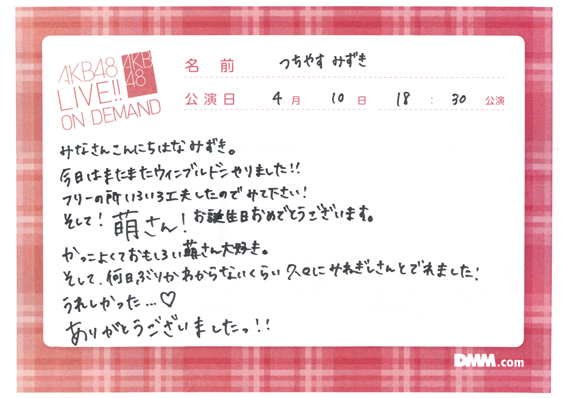 AKB48
LIVE!!
ON DEMAND
AKB
48
名前 つちやす みずき
公演日 4月 10日 18:30 公演
みなさんこんにちはなみずき。
今日はまたまたウィンブルドンやりました!!
フリーの所いろいろ工夫したのでみて下さい!
そして! 萌さん! お誕生日おめでとうございます。
かっこよくておもしろい萌さん大好き。
そして、何日ぶりかわからないくらい久々にみねぎしさんとでれました!
うれしかった...♡
ありがとうございましたっ!!
DMM.com